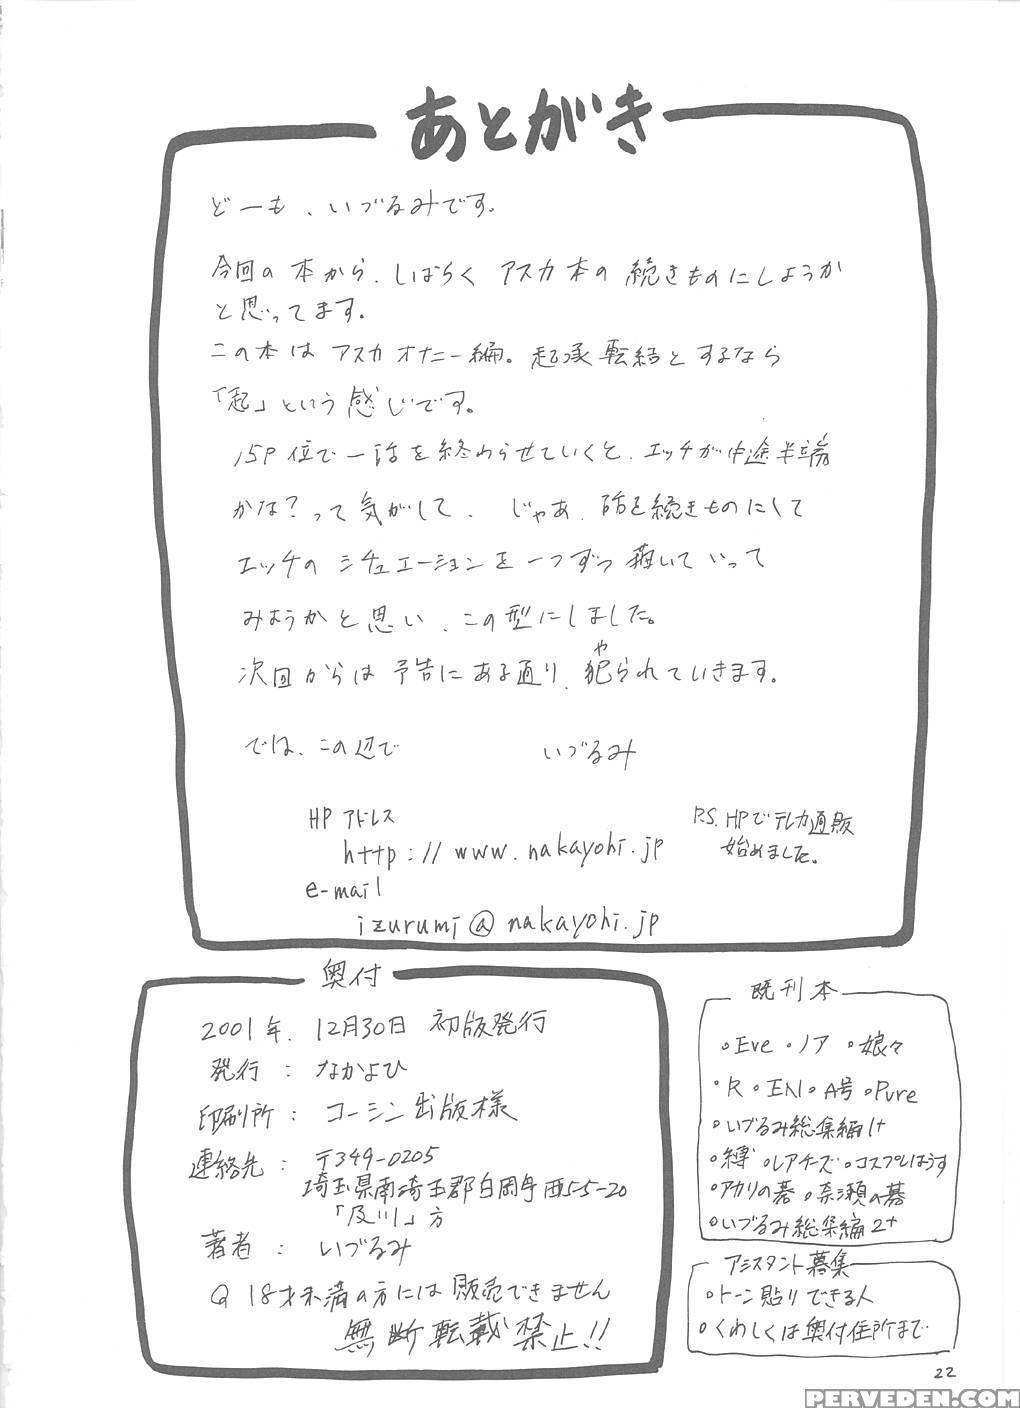 あとがき
どーも、いづるみです。
今回の本から、しばらく アスカ本の 続きものにしようか
と思ってます。
この本は アスカオナニー編。起承転結とするなら
「起」という感じです。
15P位で一話を終わらせていくと、エッチが中途半端
かな?って気がして、じゃあ、話を続きものにして
エッチの シチュエーションを一つずつ描いていって
みようかと思い、この型にしました。
次回からは予告にある通り、犯(や)られていきます。
では、この辺で いづるみ
HPアドレス
http://www.nakayohi.jp
e-mail
izurumi@nakayohi.jp
P.S. HPでテレカ通販
始めました。
奥付
2001年.12月30日 初版発行
発行:なかよひ
印刷所:コーシン出版様
連絡先:〒349-0205
埼玉県南埼玉郡白岡町西5-5-20
「及川」方
著者:いづるみ
18才未満の方には販売できません
無断転載禁止!!
既刊本
・Eve ・ノア ・娘々
・R ・EN1 ・A号 ・Pure
・いづるみ総集編1+
・縛 ・レアチーズ ・コスプレはうす
・アカリの碁 ・奈瀬の碁
・いづるみ総集編2+
アシスタント募集
・トーン貼りできる人
・くわしくは奥付住所まで
22
PERVEDEN.COM